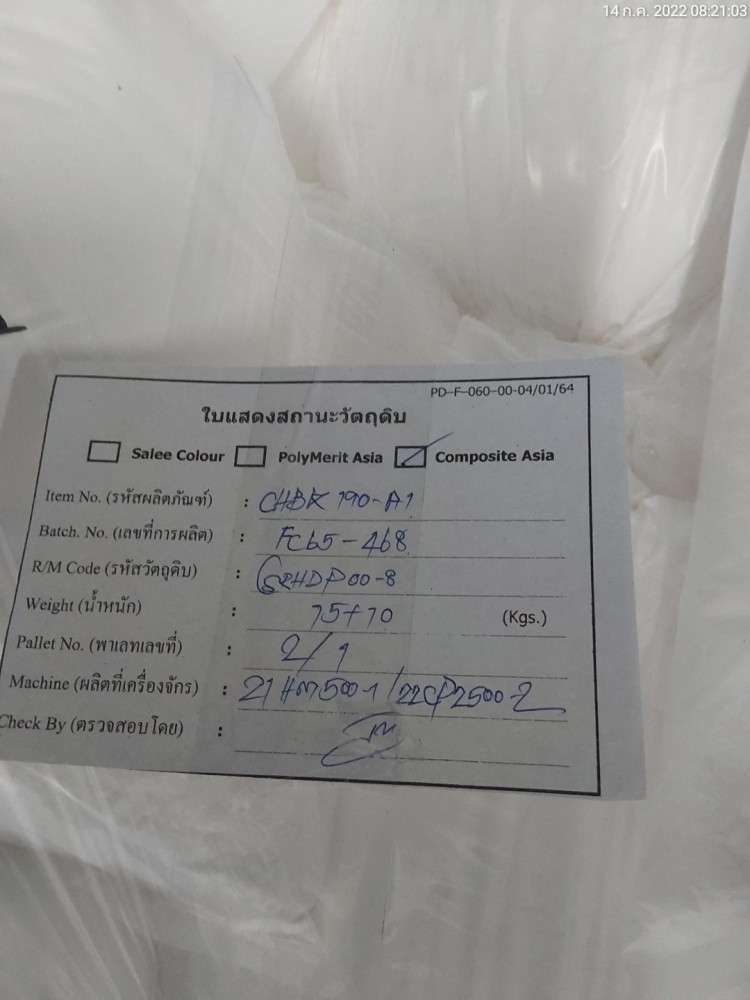 14 ก.ค. 2022 08:21:03
PD-F-060-00-04/01/64
ใบแสดงสถานะวัตถุดิบ
Salee Colour PolyMerit Asia Composite Asia
Item No. (รหัสผลิตภัณฑ์) : CHBK 190-A1
Batch. No. (เลขที่การผลิต) : FC65-468
R/M Code (รหัสวัตถุดิบ) :
Weight (น้ำหนัก) : 75+70 (Kgs.)
Pallet No. (พาเลทเลขที่) : 2/1
Machine (ผลิตที่เครื่องจักร) : 21HM500-1/22CP2500-2
Check By (ตรวจสอบโดย) :